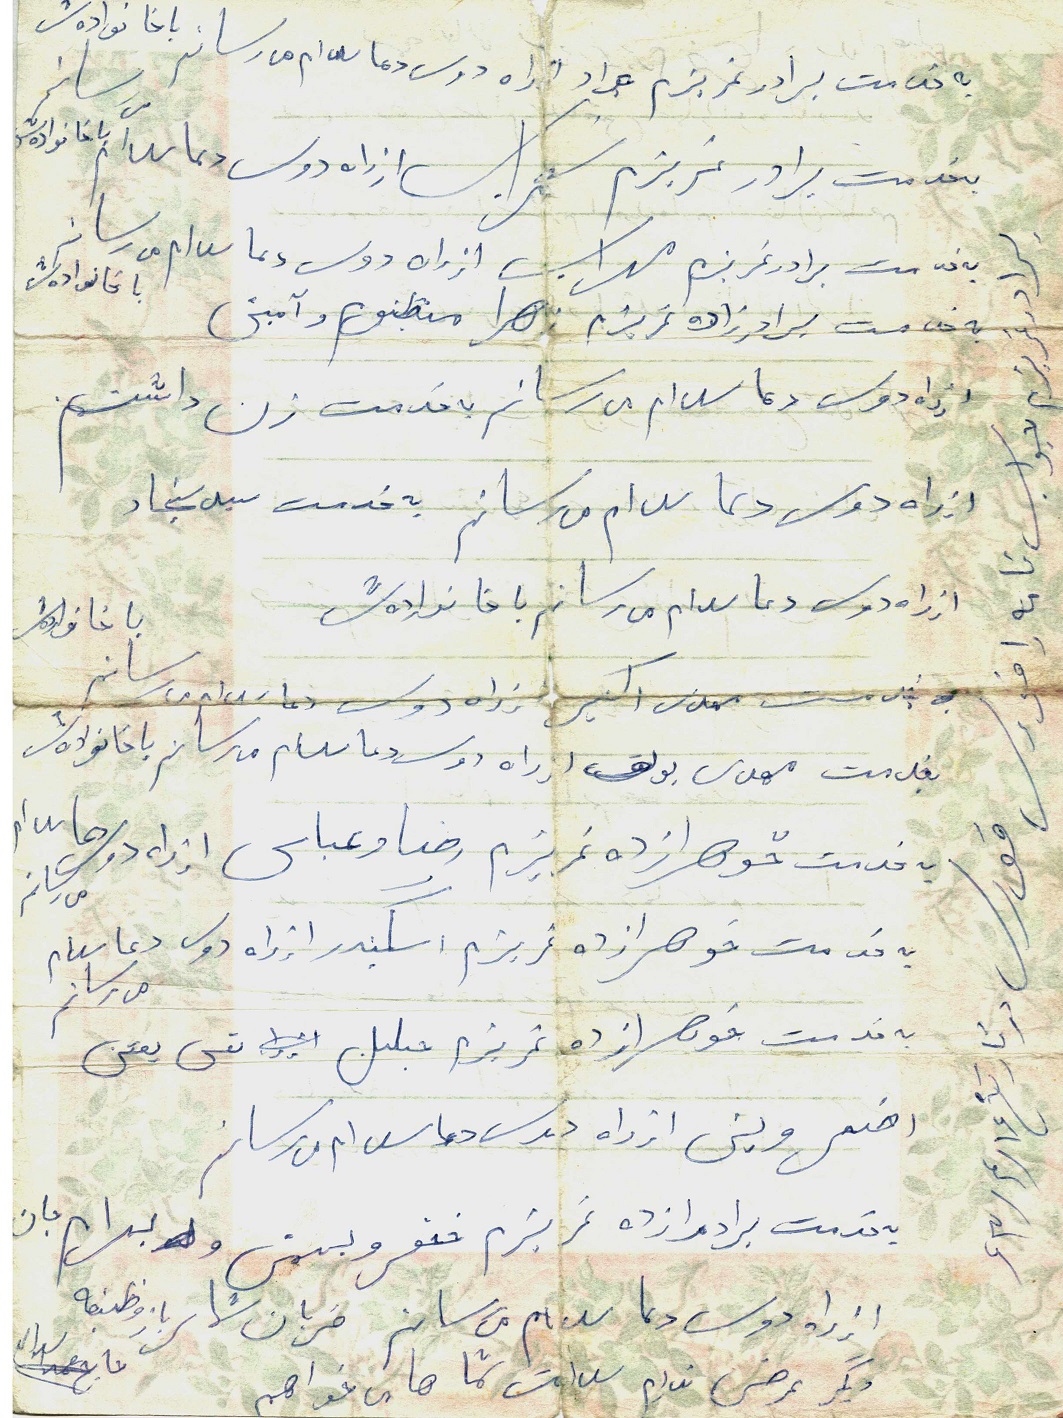 به خدمت برادر عزیزم جواد از راه دوس دعا سلام می رسانم با خانوادهش
بخدمت برادر عزیزم از راه دوس دعا سلام می رسانم با خانوادهش
به خدمت برادر عزیزم سهراب از راه دوس دعا سلام می رسانم
با خانوادهش
به خدمت برادرزاده عزیزم زهرا و آمین
از راه دوس دعا سلام می رسانم به خدمت زن داشتم
از راه دوس دعا سلام می رسانم به خدمت سید سجاد
از راه دوس دعا سلام می رسانم با خانوادهش
به خدمت مهدی اکبر از راه دوس دعا سلام می رسانم با خانوادهش
بخدمت مهدی از راه دوس دعا سلام می رسانم با خانوادهش
به خدمت خوهرازده عزیزم رضا و عباس از راه دوس دعا سلام
می رسانم
به خدمت خوهرازده عزیزم اسکندر از راه دوس دعا سلام
می رسانم
به خدمت خوهرازده عزیزم جلیل تقی یعنی
از راه دوس دعا سلام می رسانم
به خدمت برادرازده عزیزم و بهرام جان
از راه دوس دعا سلام می رسانم قربان شما سرباز وظیفه
دیگر عرضی ندارم سلامت شما های خواهم
برادر عزیزم جواب نامه را فوری فوری در تاریخ